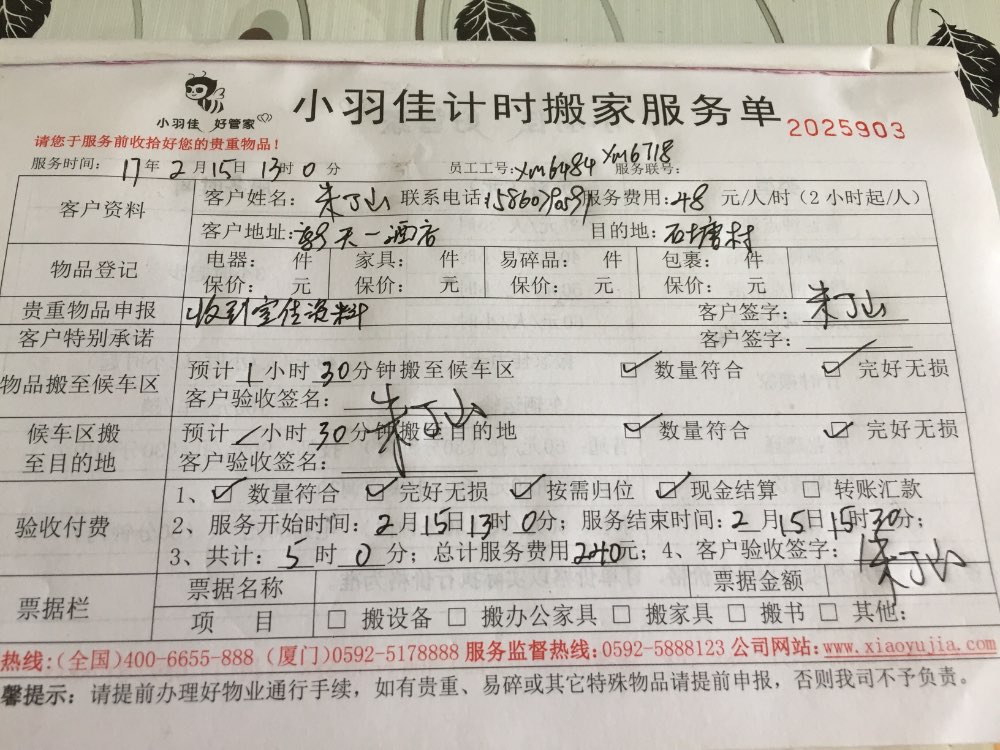 小羽佳 好管家
小羽佳计时搬家服务单 2025903
请您于服务前收拾好您的贵重物品！
服务时间: 17年2月15日13时0分 员工工号: XM6484 XM6718 服务联号:
客户资料 客户姓名: 朱丁山 联系电话: 服务费用: 48 元/人/时（2小时起/人）
客户地址: 天一酒店 目的地: 石塘村
物品登记 电器: 件 家具: 件 易碎品: 件 包裹: 件
保价: 元 保价: 元 保价: 元 保价: 元
贵重物品申报 收到宣传资料 客户签字: 朱丁山
客户特别承诺 客户签字:
物品搬至候车区 预计 1 小时 30 分钟搬至候车区 ☑ 数量符合 ☑ 完好无损
客户验收签名: 朱丁山
候车区搬至目的地 预计 / 小时 30 分钟搬至目的地 ☑ 数量符合 ☑ 完好无损
客户验收签名:
验收付费 1、☑ 数量符合 ☑ 完好无损 ☑ 按需归位 ☑ 现金结算 □ 转账汇款
2、服务开始时间: 2月15日13时0分；服务结束时间: 2月15日15时30分；
3、共计: 5 时 0 分；总计服务费用240元；4、客户验收签字: 朱丁山
票据栏 票据名称 票据金额
项 目 □ 搬设备 □ 搬办公家具 □ 搬家具 □ 搬书 □ 其他:
热线:(全国)400-6655-888 (厦门)0592-5178888 服务监督热线:0592-5888123 公司网站:www.xiaoyujia.com
馨提示: 请提前办理好物业通行手续，如有贵重、易碎或其它特殊物品请提前申报，否则我司不予负责。